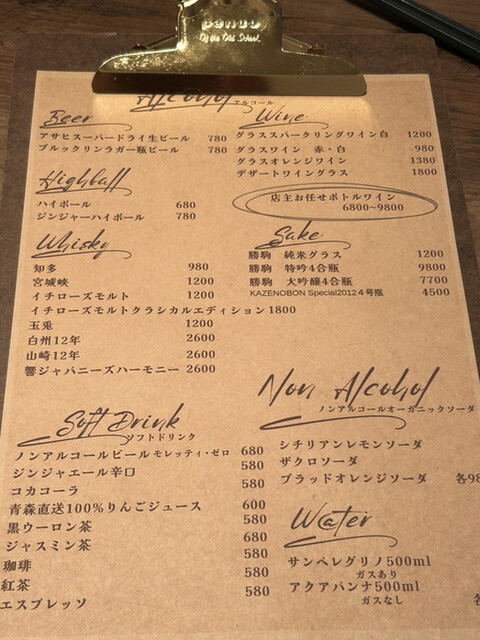 penco
By the Old School.
Alcohol
アルコール
Beer
アサヒスーパードライ生ビール 780
ブルックリンラガー瓶ビール 780
Wine
グラススパークリングワイン白 1200
グラスワイン 赤・白 980
グラスオレンジワイン 1380
デザートワイングラス 1800
店主お任せボトルワイン
6800~9800
Highball
ハイボール 680
ジンジャーハイボール 780
Whisky
知多 980
宮城峡 1200
イチローズモルト 1200
イチローズモルトクラシカルエディション1800
玉兎 1200
白州12年 2600
山崎12年 2600
響ジャパニーズハーモニー 2600
Sake
勝駒 純米グラス 1200
勝駒 特吟4合瓶 9800
勝駒 大吟醸4合瓶 7700
KAZENOBON Special2012４号瓶 4500
Soft Drink
ソフトドリンク
ノンアルコールビール モレッティ・ゼロ 680
ジンジャエール辛口 580
コカコーラ 580
青森直送100%りんごジュース 600
黒ウーロン茶 580
ジャスミン茶 680
珈琲 580
紅茶 580
エスプレッソ 580
Non Alcohol
ノンアルコールオーガニックソーダ
シチリアンレモンソーダ
ザクロソーダ
ブラッドオレンジソーダ 各98
Water
サンペレグリノ500ml
ガスあり
アクアパンナ500ml
ガスなし
各